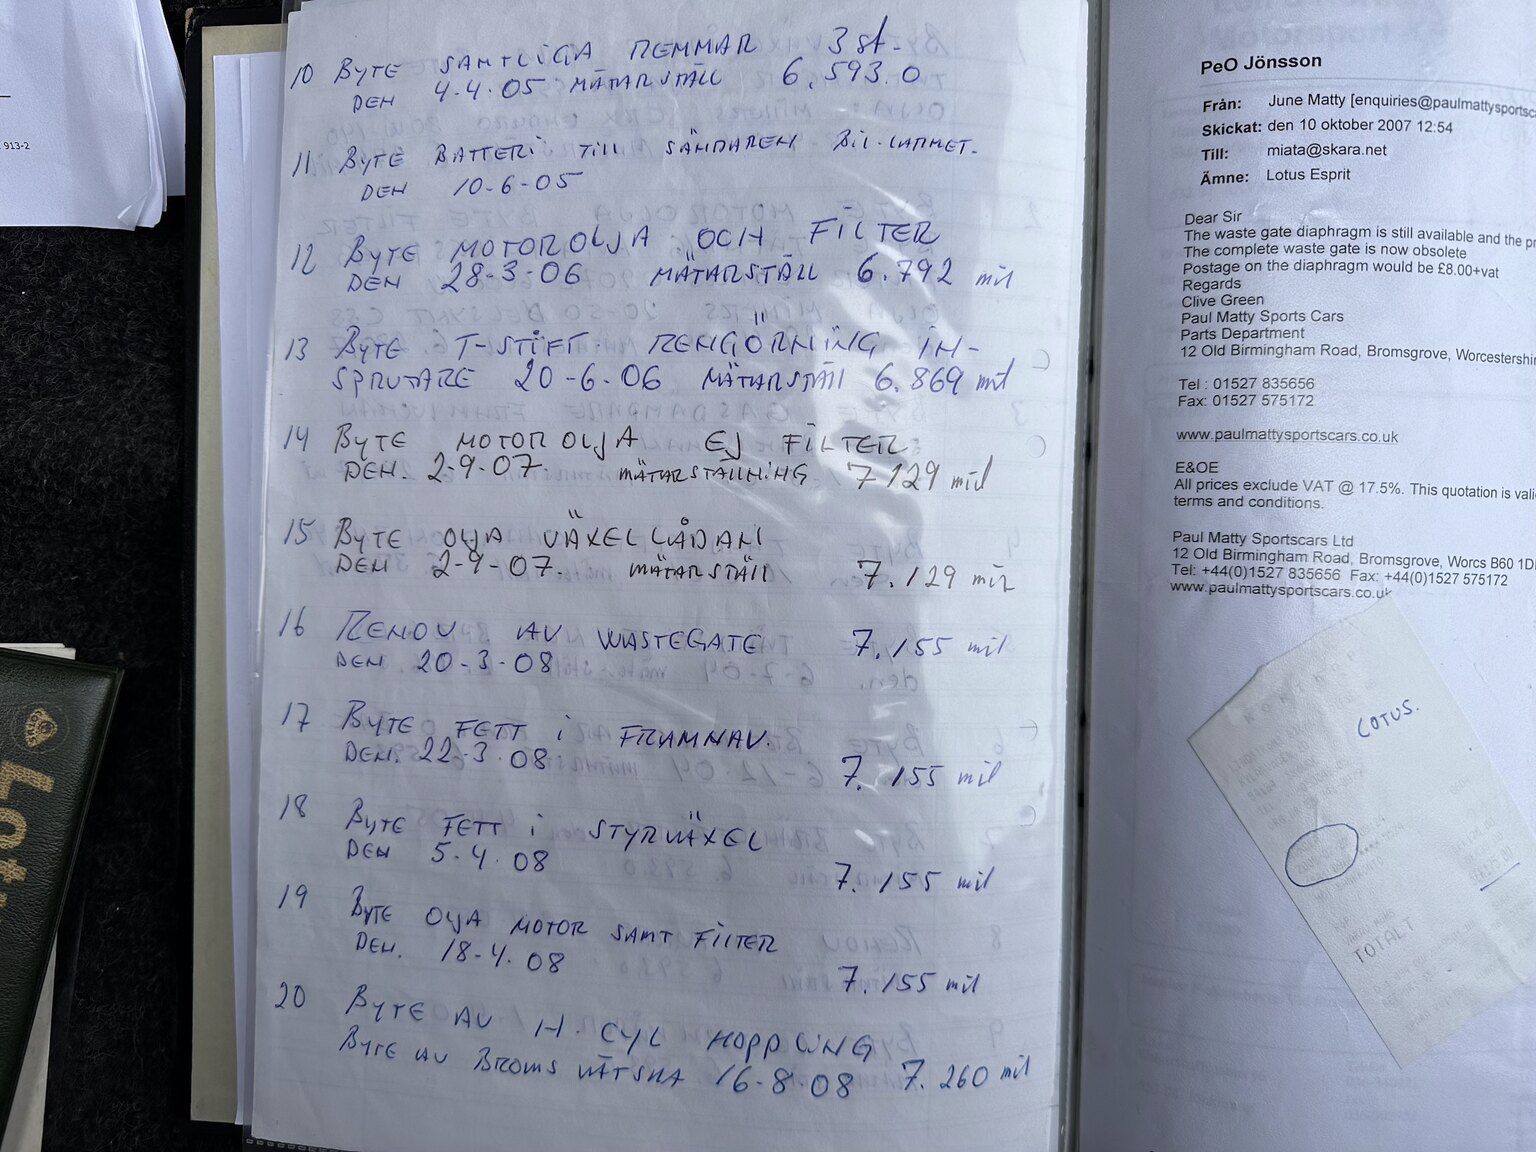 913-2
10 BYTE SAMTLIGA REMMAR 3 st.
DEN 4.4.05 MÄTARSTÄLL 6.593.0
11 BYTE BATTERI TILL SÄNDAREN BIL-LARMET.
DEN 10-6-05
12 BYTE MOTOROLJA OCH FILTER
DEN 28-3-06 MÄTARSTÄLL 6.792 mil
13 BYTE T-STIFT RENGÖRNING IN-
SPRUTARE 20-6-06 MÄTARSTÄLL 6.869 mil
14 BYTE MOTOROLJA EJ FILTER
DEN. 2-9-07. MÄTARSTÄLLNING 7129 mil
15 BYTE OLJA VÄXELLÅDAN
DEN 2-9-07. MÄTARSTÄLL 7.129 mil
16 RENOV AV WASTEGATE 7.155 mil
DEN 20-3-08
17 BYTE FETT i FRAMNAV.
DEN. 22-3.08 7.155 mil
18 BYTE FETT i STYRVÄXEL
DEN 5.4.08 7.155 mil
19 BYTE OLJA MOTOR SAMT FILTER
DEN. 18-4.08 7.155 mil
20 BYTE AV H. CYL KOPPLING
BYTE AV BROMSVÄTSKA 16-8-08 7.260 mil
PeO Jönsson
Från: June Matty [enquiries@paulmattysportsca
Skickat: den 10 oktober 2007 12:54
Till: miata@skara.net
Ämne: Lotus Esprit
Dear Sir
The waste gate diaphragm is still available and the pr
The complete waste gate is now obsolete
Postage on the diaphragm would be £8.00+vat
Regards
Clive Green
Paul Matty Sports Cars
Parts Department
12 Old Birmingham Road, Bromsgrove, Worcestershir
Tel : 01527 835656
Fax: 01527 575172
www.paulmattysportscars.co.uk
E&OE
All prices exclude VAT @ 17.5%. This quotation is vali
terms and conditions.
Paul Matty Sportscars Ltd
12 Old Birmingham Road, Bromsgrove, Worcs B60 1D
Tel: +44(0)1527 835656 Fax: +44(0)1527 575172
www.paulmattysportscars.co.uk
LOTUS.
TOTALT
Lot